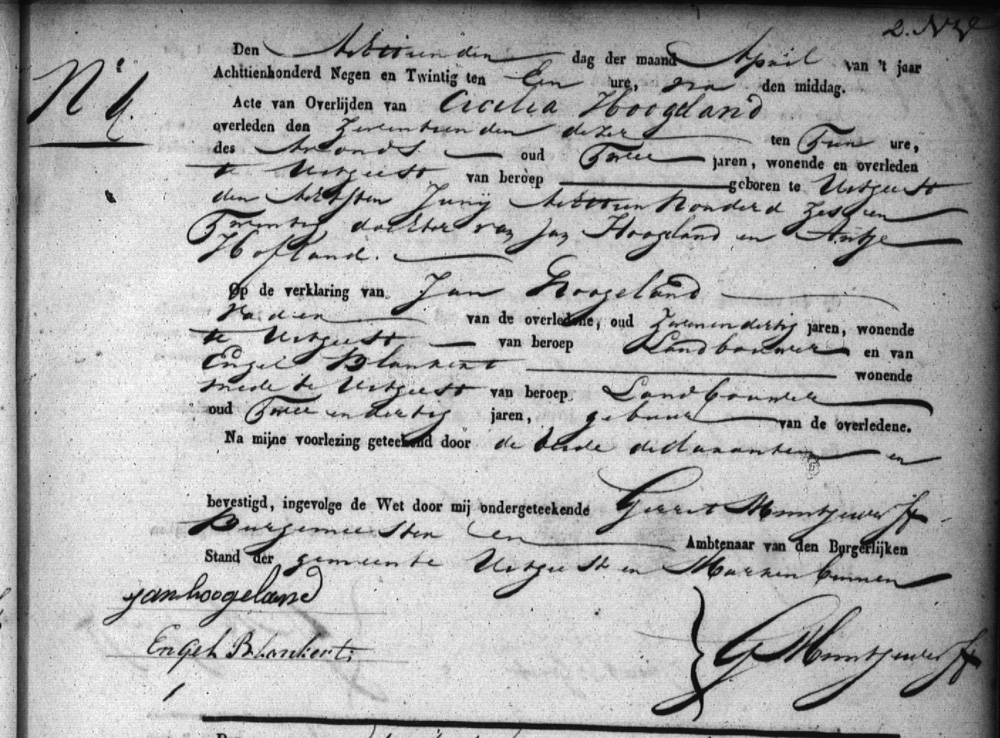 N° 9.
Den Achttienden dag der maand April van 't jaar
Achttienhonderd Negen en Twintig ten Een ure, na den middag.
Acte van Overlijden van Cicilia Hoogland
overleden den Zeventienden dezer ten Tien ure,
des Avonds oud Twee jaren, wonende en overleden
te Uitgeest van beroep geboren te Uitgeest
den Achtsten Junij Achttien Honderd Zes en
Twintig dochter van Jan Hoogland en Antje
Hofland.
Op de verklaring van Jan Hoogeland
Vader van de overledene, oud Zevenendertig jaren, wonende
te Uitgeest van beroep Landbouwer en van
Engel Blankert wonende
mede te Uitgeest van beroep Landbouwer
oud Twee en dertig jaren, gebuur van de overledene.
Na mijne voorlezing geteekend door de beide declaranten en
bevestigd, ingevolge de Wet door mij ondergeteekende Gerrit Muntjewerff
Burgemeester en Ambtenaar van den Burgerlijken
Stand der gemeente Uitgeest en Markenbinnen
jan hoogeland
Engel Blankert
G Muntjewerff